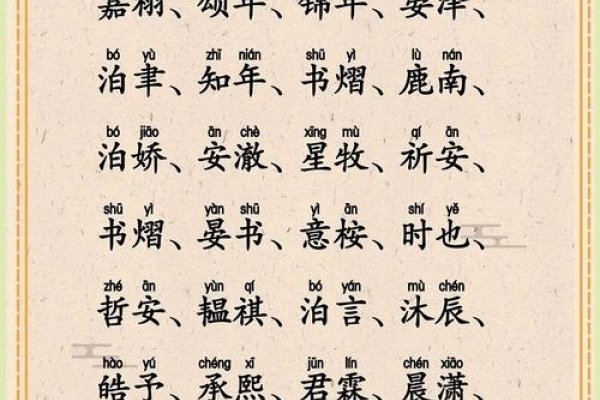 嘉栩、颂年、锦年、泽、
bó yù zhī nián shū yì lù nán
泊聿、知年、书熠、鹿南、
bó jiāo ān chè xīng mù qí ān
泊娇、安澈、星牧、祈安、
shū yì yàn shū yì ān shí yě
书熠、晏书、意桉、时也、
zhé ān yùn qí bó yán mù chén
哲安、韫祺、泊言、沐辰、
hào yú chéng xī jūn lín chén xiāo
皓予、承熙、君霖、晨潇、